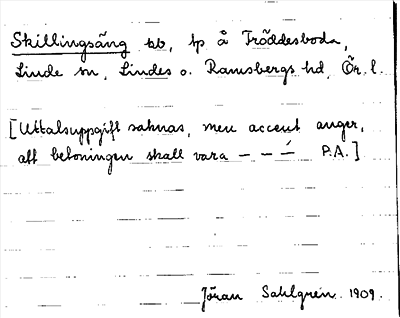 Skillingsäng bb, tp å Tröddesboda,
Linde sn, Lindes o. Ramsbergs hd, Ör. l.
[Uttalsuppgift saknas, men accent anger,
att betoningen skall vara – – –́ P.A.]
Jöran Sahlgren 1909.